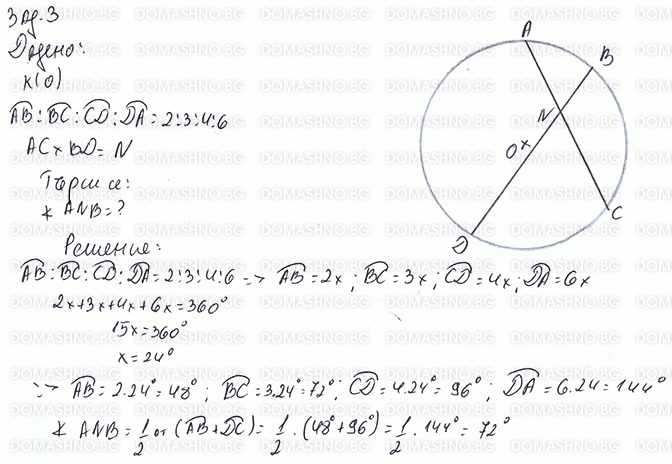 Зад.3
Дадено:
k(O)
A͡B:B͡C:C͡D:D͡A=2:3:4:6
AC x BD= N
Търси се:
∢ ANB=?
Решение:
A͡B:B͡C:C͡D:D͡A=2:3:4:6 => A͡B=2x; B͡C=3x; C͡D=4x; D͡A=6x
2x+3x+4x+6x=360°
15x=360°
x=24°
=> A͡B=2.24°=48°; B͡C=3.24°=72°; C͡D=4.24°=96°; D͡A=6.24=144°
∢ ANB=1/2 от (A͡B+D͡C)=1/2.(48°+96°)=1/2.144°=72°
A
B
N
O
C
D
DOMASHNO.BG